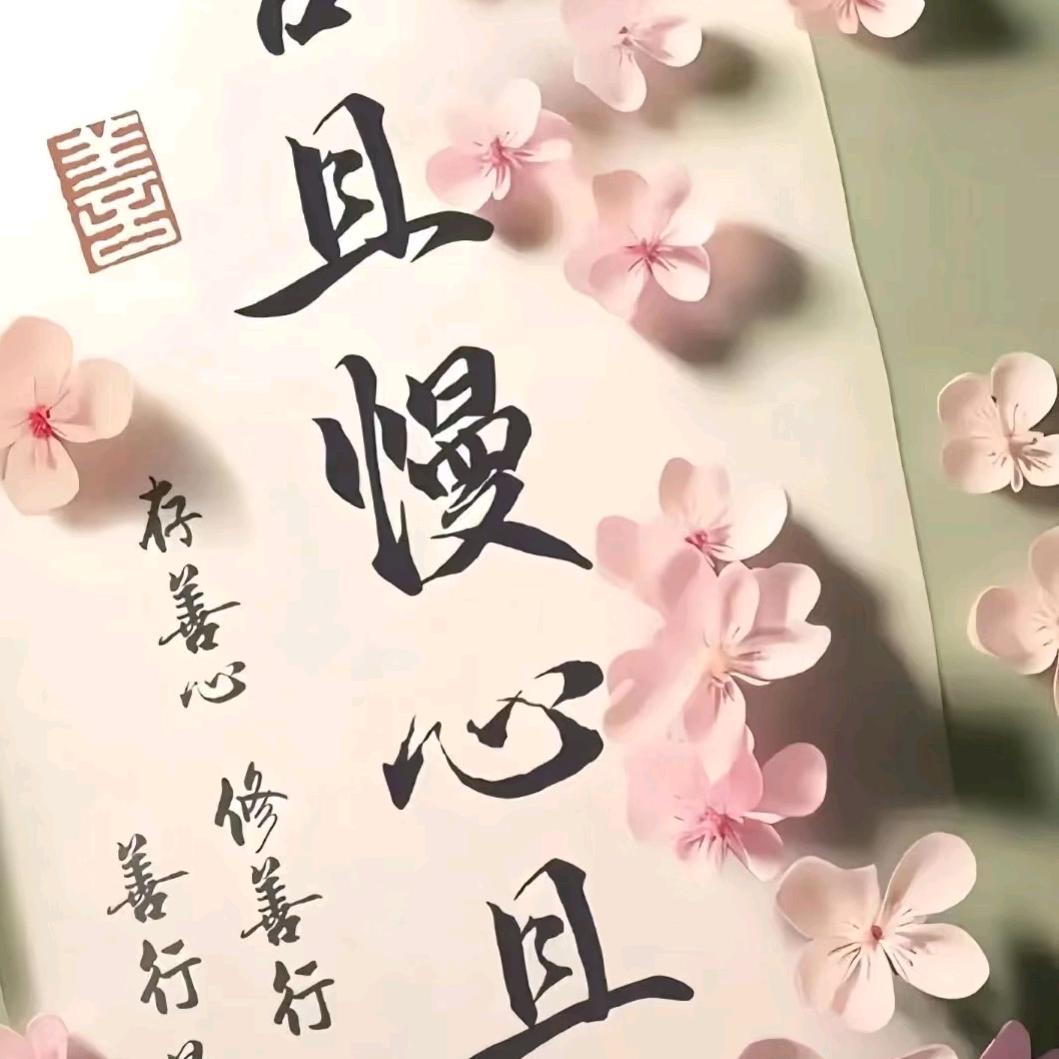 且慢心且
存善心
修善行
善行